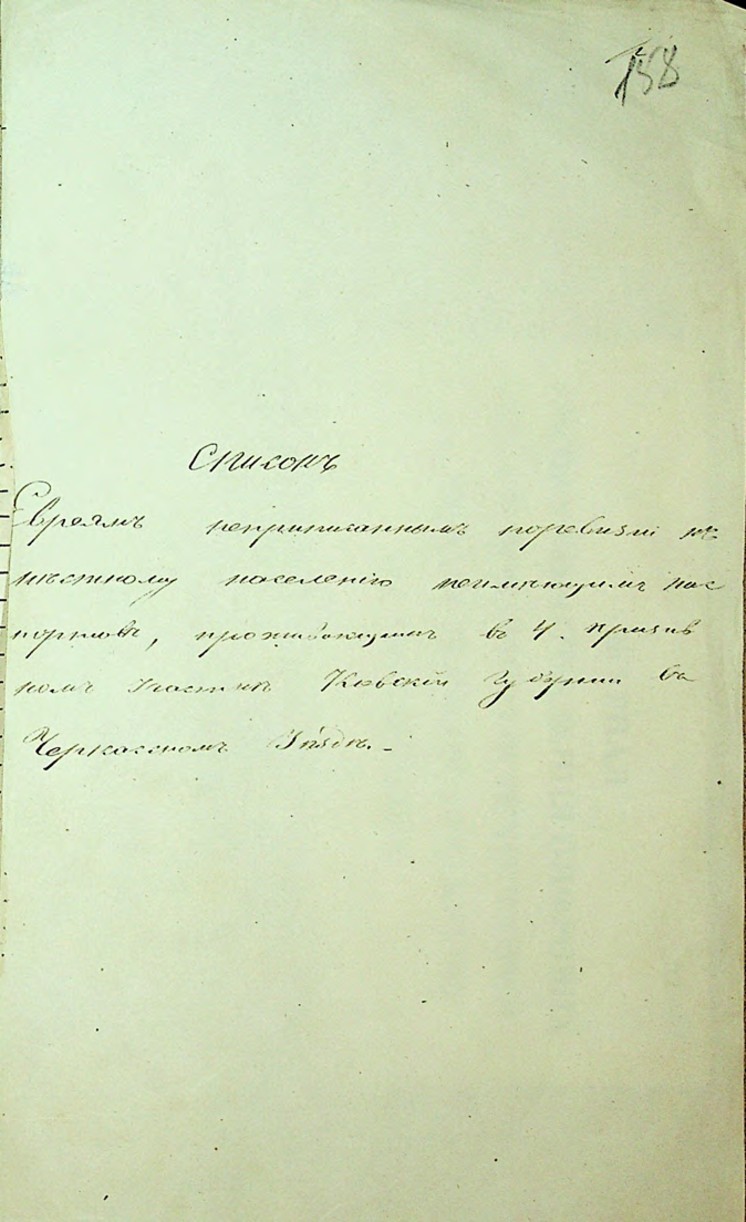 158
Списокъ
Евреямъ неприписаннымъ поревизіи къ
мѣстному населенію неимѣющимъ пас
портовъ, проживающимъ въ 4. призыв
номъ участкѣ Кевской Губерніи въ
Черкасскомъ Уѣздѣ. -